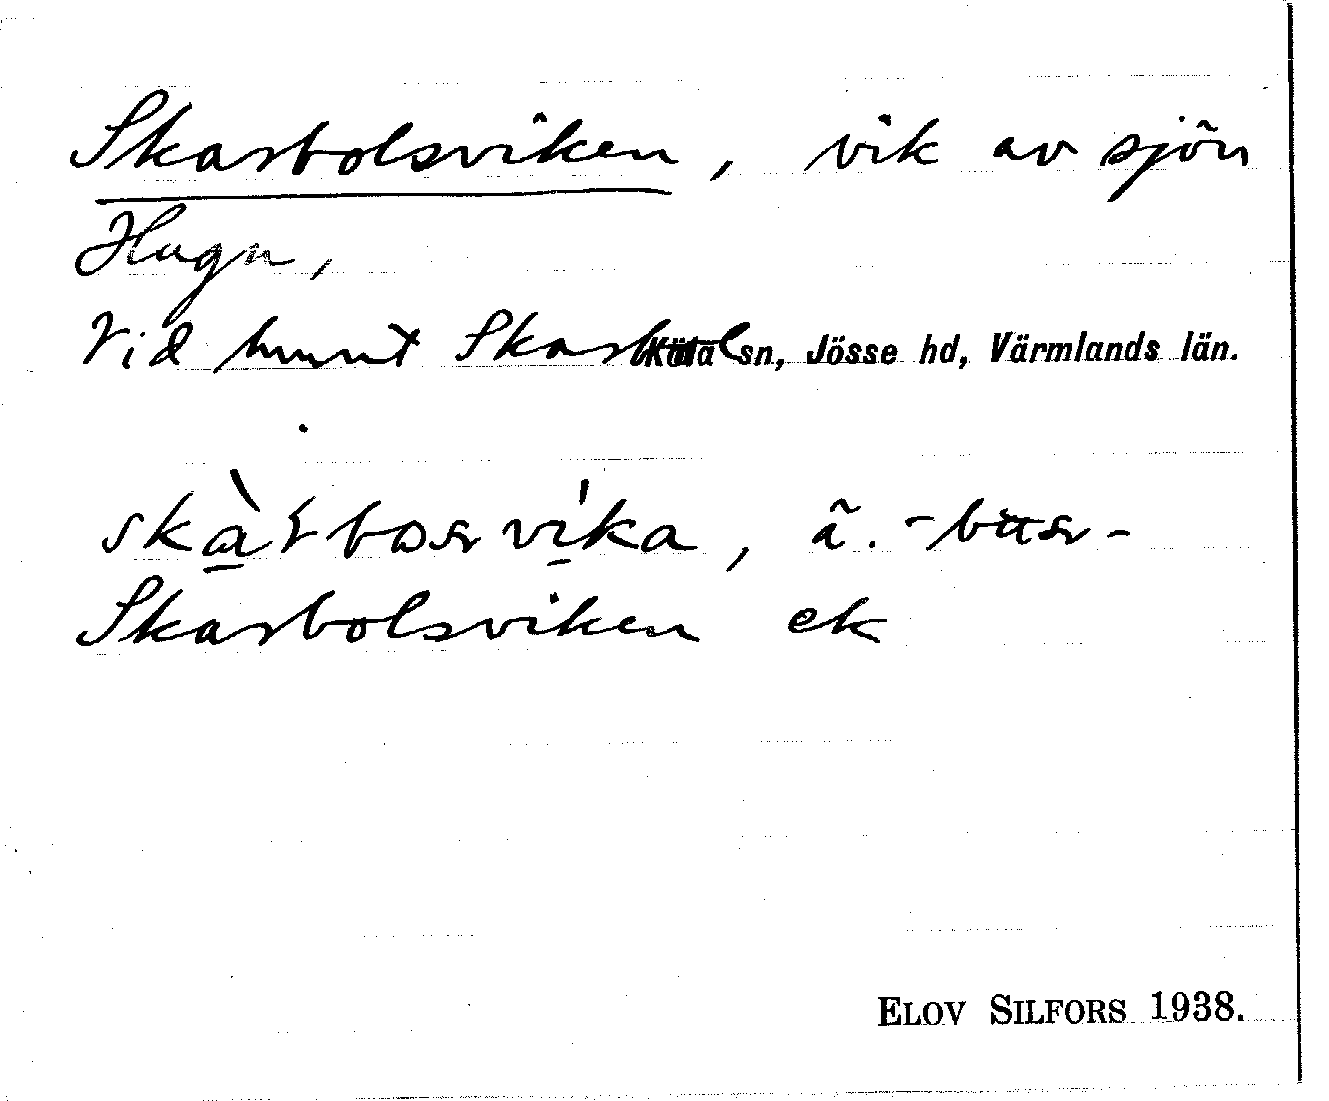 Skarbolsviken, vik av sjön
Hugn,
Vid hmnt Skarbol sn, Jösse hd, Värmlands län.
skàrbosvika, ä. -bus-
Skarbolsviken ek
ELOV SILFORS 1938.